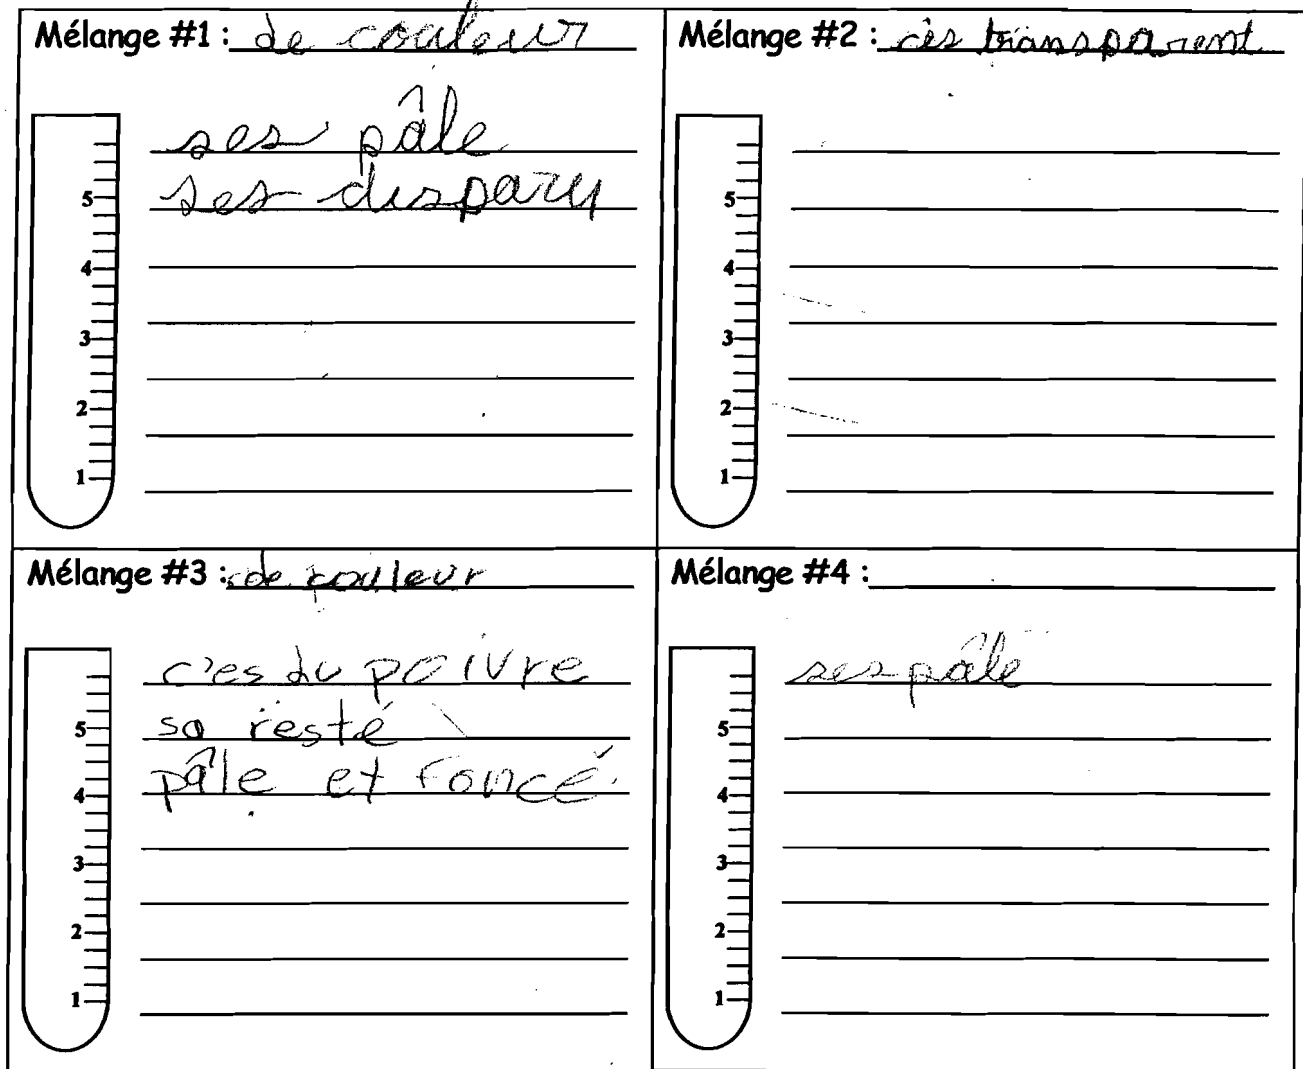 Mélange #1 : de couleur
ses pâle
ses disparu
5
4
3
2
1
Mélange #2 : cès transparent
5
4
3
2
1
Mélange #3 : de couleur
c'es du poivre
sa resté
pâle et foncé.
5
4
3
2
1
Mélange #4 :
ses pâle
5
4
3
2
1